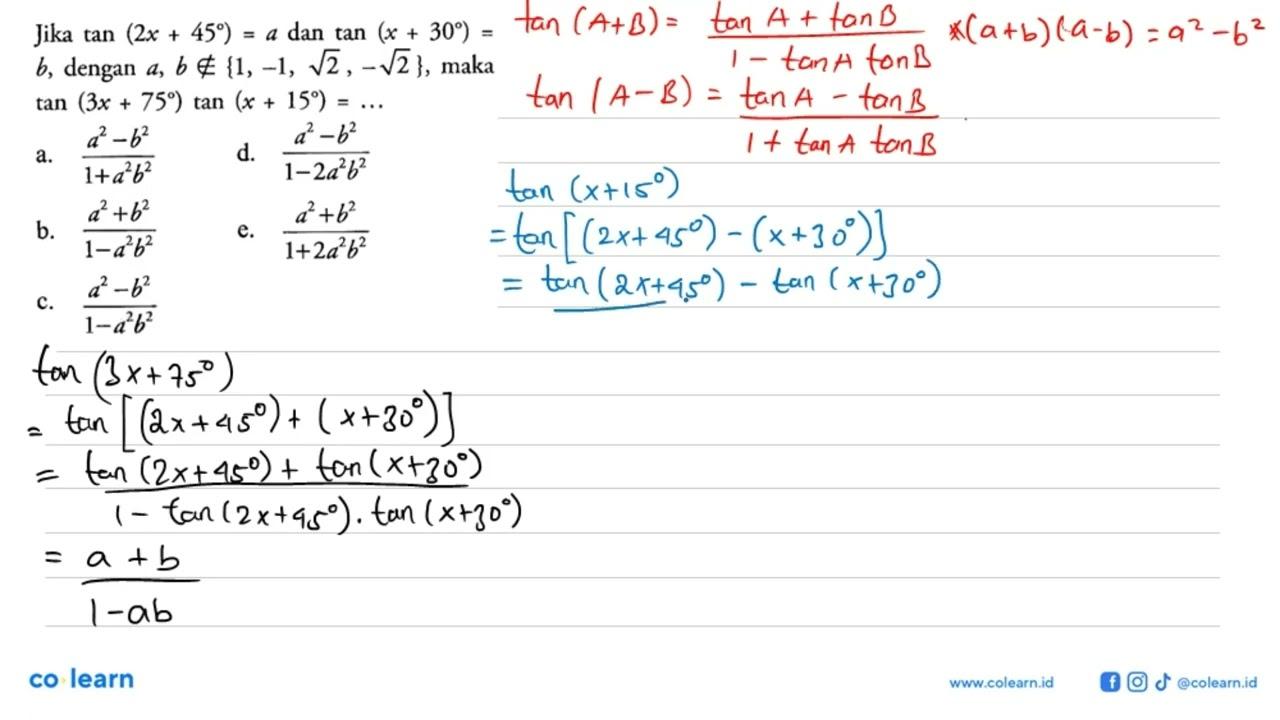 Jika tan (2x + 45°) = a dan tan (x + 30°) =
b, dengan a, b ∉ {1, –1, √2, –√2}, maka
tan (3x + 75°) tan (x + 15°) = ...
a. (a² – b²)/(1 + a²b²)
b. (a² + b²)/(1 – a²b²)
c. (a² – b²)/(1 – a²b²)
d. (a² – b²)/(1 – 2a²b²)
e. (a² + b²)/(1 + 2a²b²)
tan (A+B) = (tan A + tan B)/(1 - tan A tan B)
*(a+b)(a-b) = a² - b²
tan (A-B) = (tan A - tan B)/(1 + tan A tan B)
tan (x+15°)
= tan [(2x+45°) - (x+30°)]
= tan (2x+45°) - tan (x+30°)
tan (3x+75°)
= tan [(2x+45°) + (x+30°)]
= (tan (2x+45°) + tan (x+30°))/(1 - tan (2x+45°) . tan (x+30°))
= (a + b)/(1 - ab)
co learn
www.colearn.id
@colearn.id